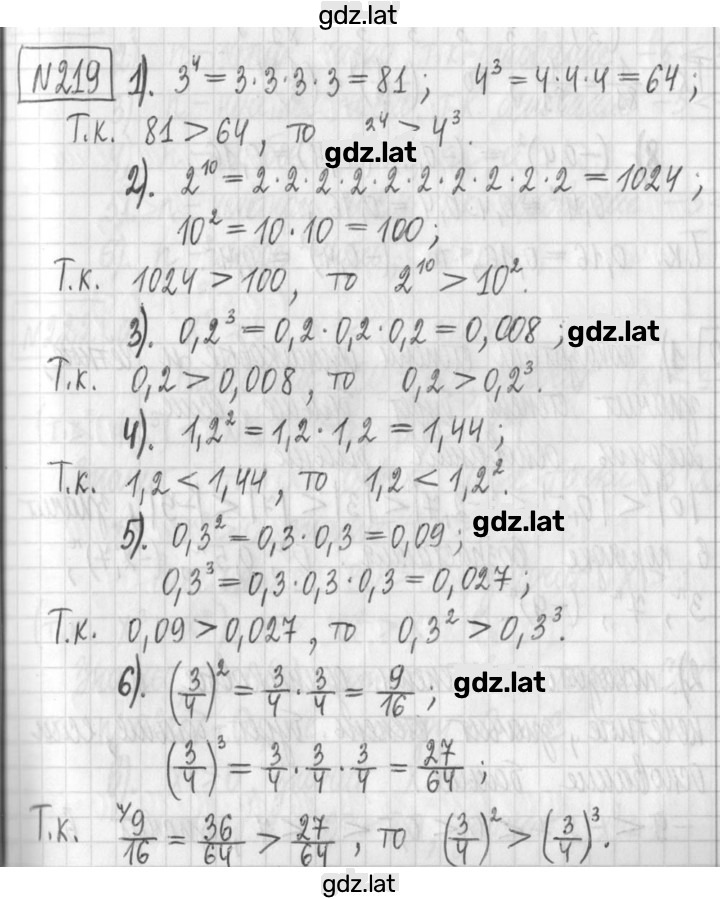 gdz.lat
№219 1). 3⁴ = 3·3·3·3 = 81; 4³ = 4·4·4 = 64;
Т.к. 81 > 64, то 2⁴ > 4³.
gdz.lat
2). 2¹⁰ = 2·2·2·2·2·2·2·2·2·2 = 1024;
10² = 10·10 = 100;
Т.к. 1024 > 100, то 2¹⁰ > 10².
3). 0,2³ = 0,2·0,2·0,2 = 0,008; gdz.lat
Т.к. 0,2 > 0,008, то 0,2 > 0,2³.
4). 1,2² = 1,2·1,2 = 1,44;
Т.к. 1,2 < 1,44, то 1,2 < 1,2².
5). 0,3² = 0,3·0,3 = 0,09; gdz.lat
0,3³ = 0,3·0,3·0,3 = 0,027;
Т.к. 0,09 > 0,027, то 0,3² > 0,3³.
6). (3/4)² = 3/4 · 3/4 = 9/16; gdz.lat
(3/4)³ = 3/4 · 3/4 · 3/4 = 27/64;
Т.к. ⁴⁾9/16 = 36/64 > 27/64, то (3/4)² > (3/4)³.
gdz.lat